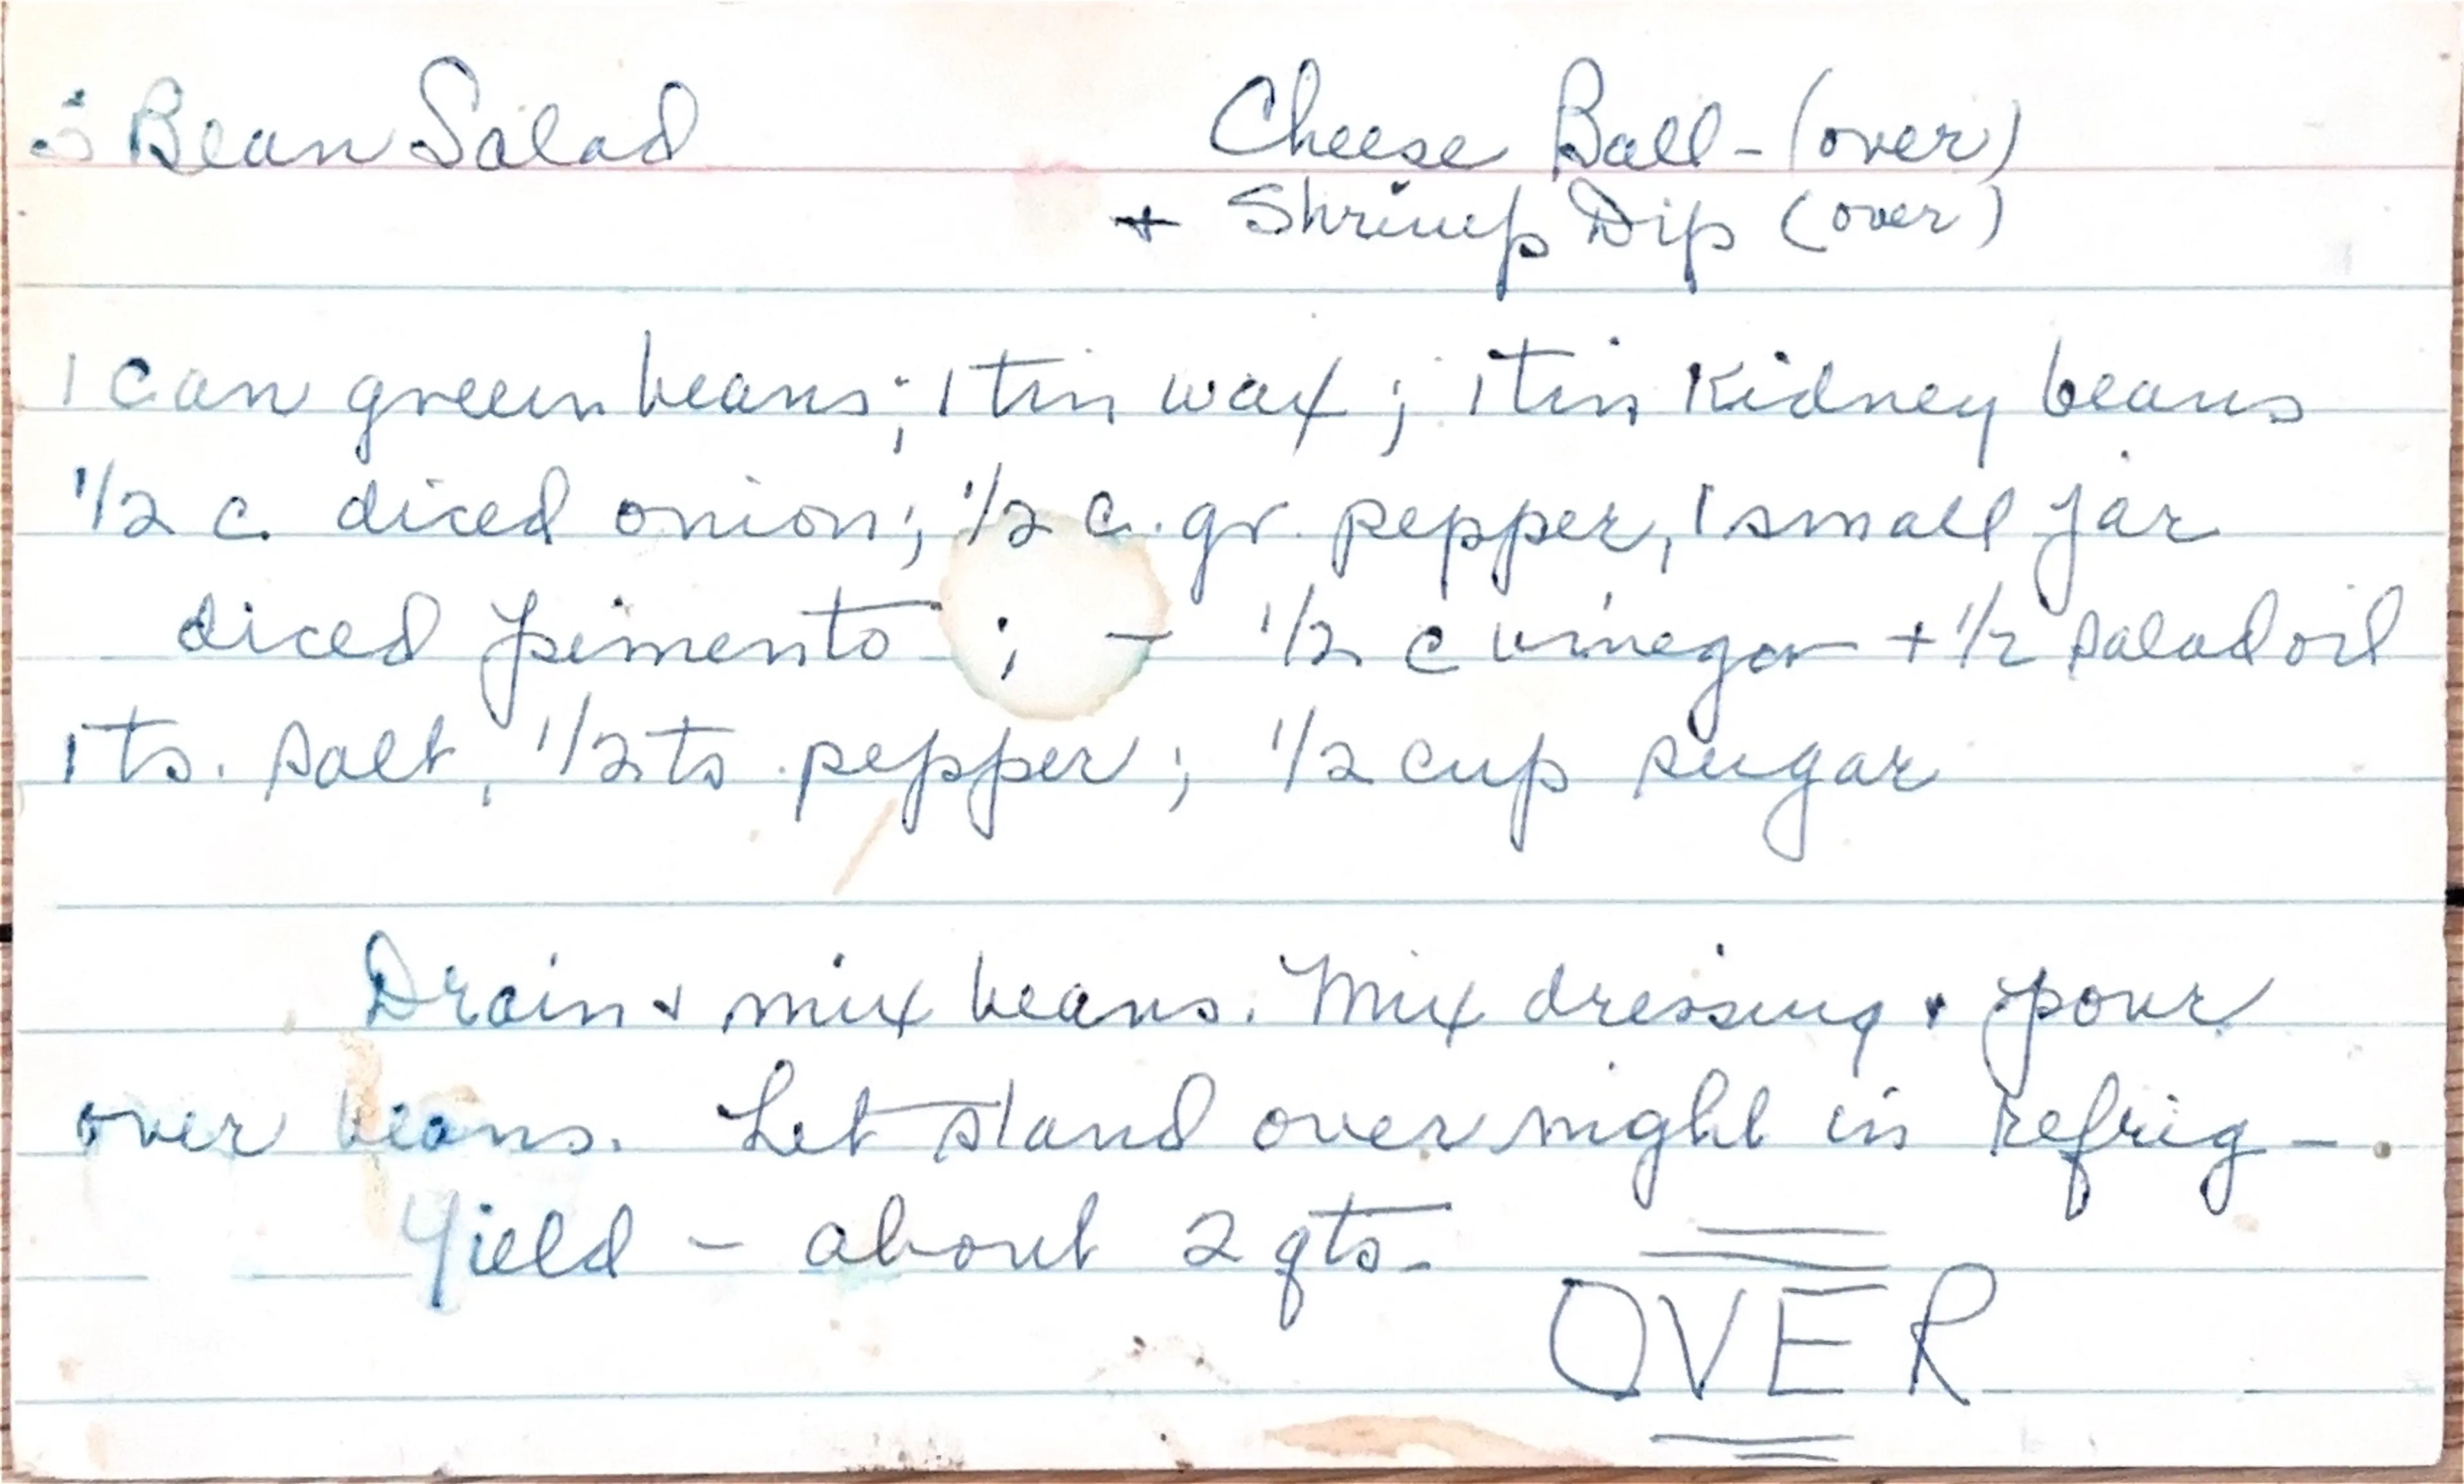 3 Bean Salad Cheese Ball - (over)
+ Shrimp Dip (over)
1 can green beans; 1 tin wax; 1 tin Kidney beans
1/2 c. diced onion; 1/2 c. gr. pepper, 1 small jar
diced pimento; - 1/2 c vinegar + 1/2 salad oil
1 ts. salt, 1/2 ts. pepper; 1/2 cup sugar
Drain & mix beans. Mix dressing & pour
over beans. Let stand over night in refrig -.
Yield - about 2 qts.
OVER